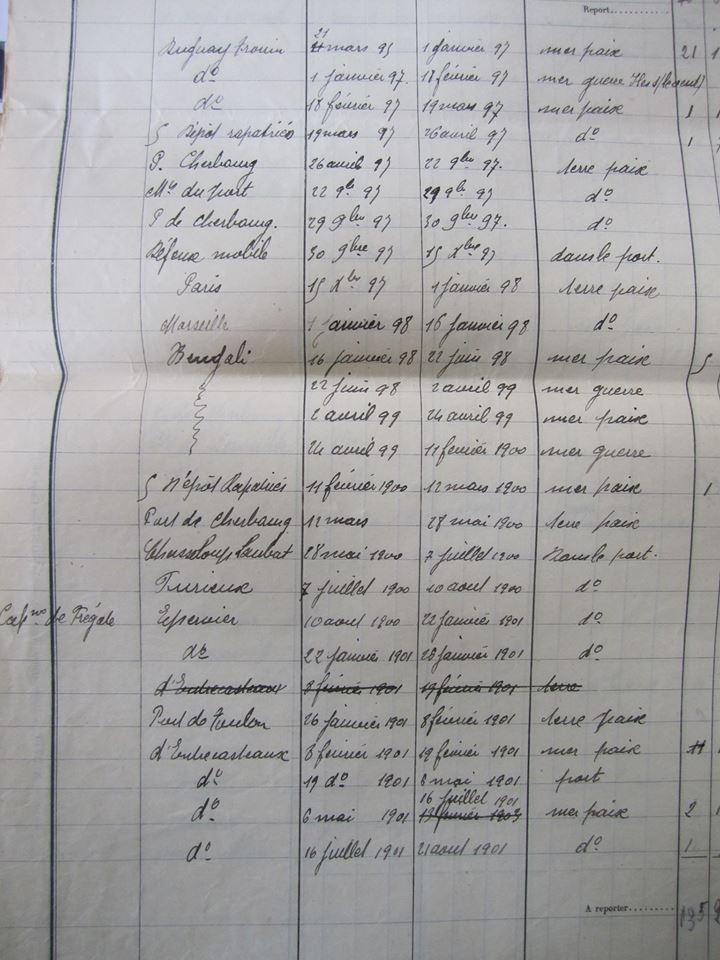 Report........
Duguay Trouin 21 mars 95 1 janvier 97 mer paix 21
do 1 janvier 97. 18 février 97 mer guerre
do 18 février 97 19 mars 97 mer paix 1
Dépôt rapatriés 19 mars 97 26 avril 97 do 1
P. Cherbourg 26 avril 97 22 9bre 97. terre paix
Mts du Port 22 9bre 97 29 9bre 97 do
P de Cherbourg. 29 9bre 97 30 9bre 97. do
Défense mobile 30 9bre 97 15 Xbre 97 dans le port.
Paris 15 Xbre 97 1 janvier 98 terre paix
Marseille 1 janvier 98 16 janvier 98 do
Bengali 16 janvier 98 22 juin 98 mer paix 5
22 juin 98 2 avril 99 mer guerre
2 avril 99 24 avril 99 mer paix
24 avril 99 11 février 1900 mer guerre
Dépôt Rapatriés 11 février 1900 12 mars 1900 mer paix 1
Port de Cherbourg 12 mars 28 mai 1900 terre paix
Chasseloup Laubat 28 mai 1900 7 juillet 1900 Dans le port.
Furieux 7 juillet 1900 10 aout 1900 do
Capne de Frégate Epervier 10 aout 1900 22 janvier 1901 do
do 22 janvier 1901 26 janvier 1901 do
d'Entrecasteaux 8 février 1901 19 février 1901 terre
Port de Toulon 26 janvier 1901 8 février 1901 terre paix
d'Entrecasteaux 8 février 1901 19 février 1901 mer paix
do 19 do 1901 6 mai 1901 port
16 juillet 1901
do 6 mai 1901 13 février 1903 mer paix 2
do 16 juillet 1901 21 aout 1901 do 1
A reporter........ 135